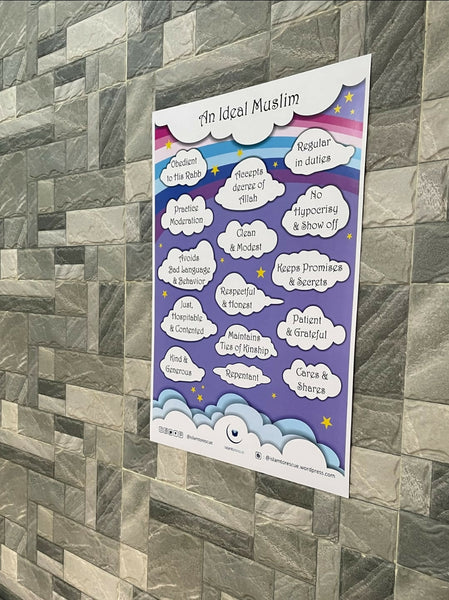 An Ideal Muslim
Obedient
to His Rabb
Accepts
decree of
Allah
Regular
in duties
Practice
Moderation
Clean
& Modest
No
Hypocrisy
& Show off
Avoids
Bad Language
& Behavior
Respectful
& Honest
Keeps Promises
& Secrets
Just,
Hospitable
& Contented
Maintains
Ties of Kinship
Patient
& Grateful
Kind &
Generous
Repentant
Cares &
Shares
@islamtorescue
islamtorescue
@islamtorescue.wordpress.com